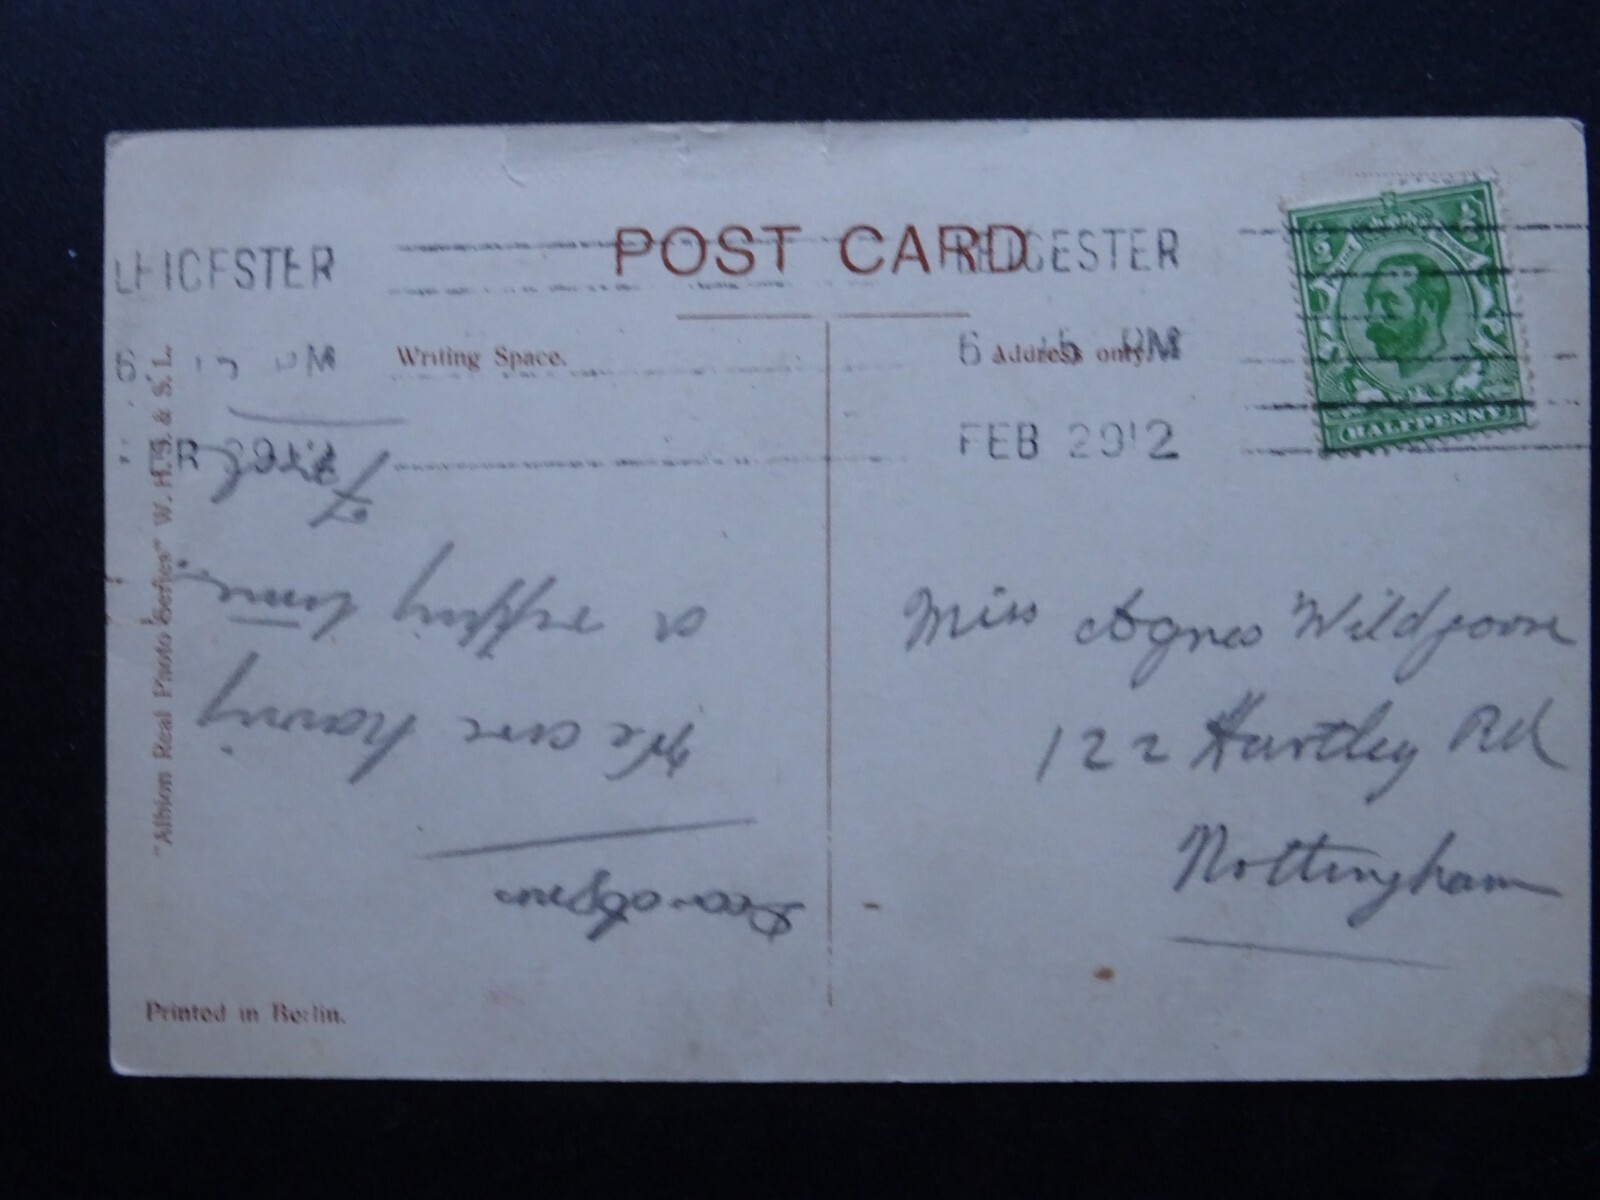 POST CARD
LEICESTER
LEICESTER
Writing Space.
Address only.
6 15 PM
6 15 PM
FEB 29 12
HALFPENNY
"Albion Real Photo Series" W. H. S. & S. L.
Printed in Berlin.
Dear Agnes
We are having
a ripping time
Fred
Miss Agnes Wildgoose
122 Hartley Rd
Nottingham